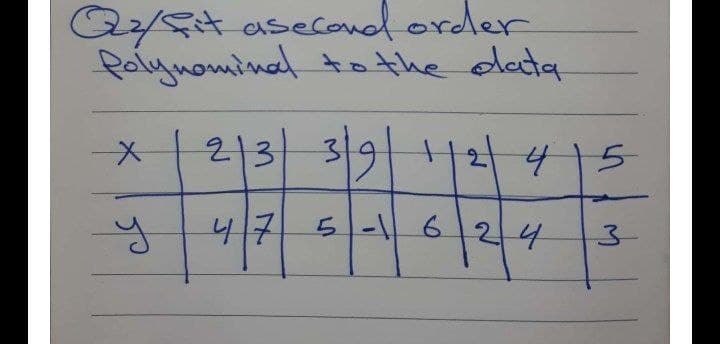 Q2/ fit a second order
Polynominal to the data
x | 2 | 3 | 3 | 9 | 1 | 2 | 4 | 5
y | 4 | 7 | 5 | -1 | 6 | 2 | 4 | 3